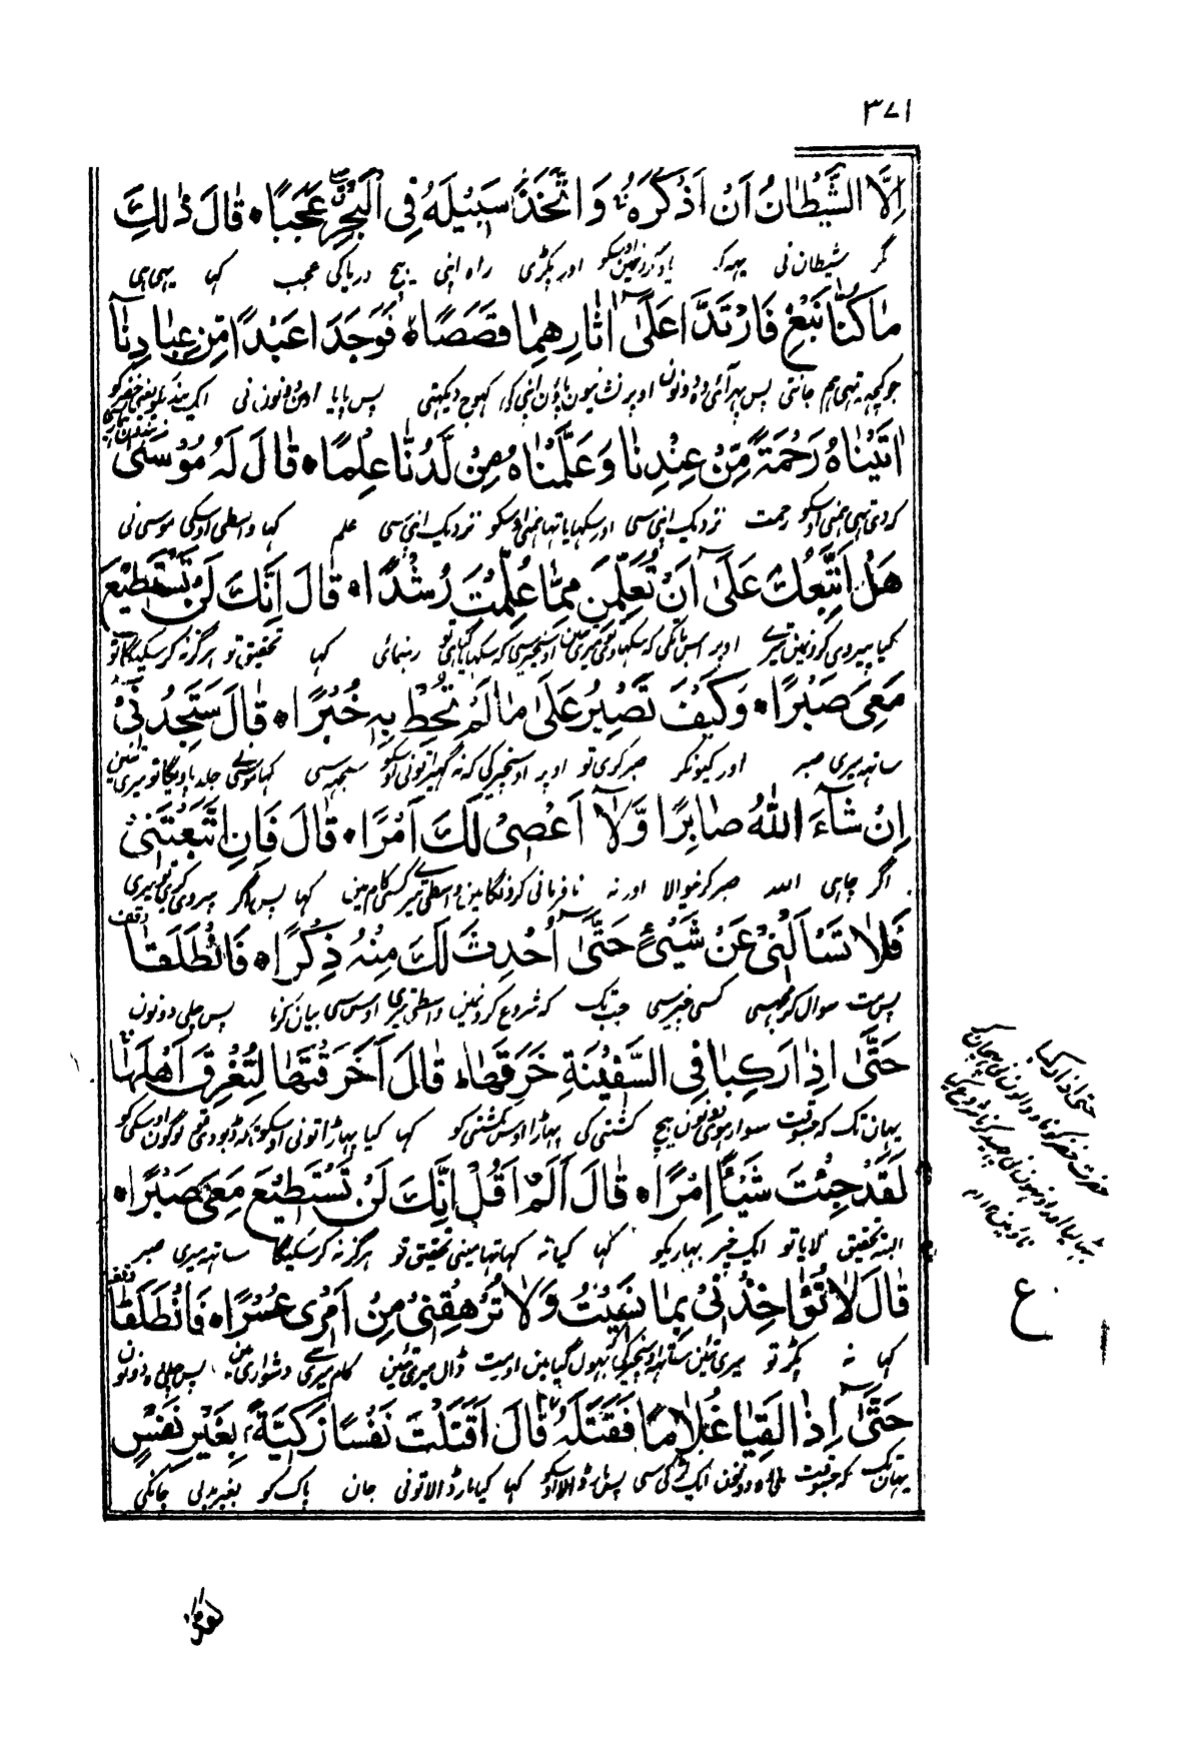 ٣٧١
اِلَّا الشَّيْطٰانُ اَنْ اَذْكُرَهُ وَاتَّخَذَ سَبِيْلَهُ فِى الْبَحْرِ عَجَبًا ۰ قٰالَ ذٰلِكَ
مگر شیطان نی یہہ کہ اور پکڑی راہ اپنی بیچ دریا کی عجب کہا یہی ہی
مٰا كُنّٰا نَبْغِ فَارْتَدَّا عَلٰى اٰثٰارِهِمٰا قَصَصًا ۰ فَوَجَدَا عَبْدًا مِّنْ عِبٰادِنٰا
جو کچہہ تہی ہم جانتی پس پہر آئی وہ دونون اوپر نشانیون پاؤن اپنی کی کہوج دیکہتی پس پایا اون دونون نی ایک بندہ
اٰتَيْنٰاهُ رَحْمَةً مِّنْ عِنْدِنٰا وَعَلَّمْنٰاهُ مِنْ لَّدُنّٰا عِلْمًا ۰ قٰالَ لَهُ مُوْسٰى
کہ دی تہی ہمنی اوسکو رحمت نزدیک اپنی سی اور سکہایا تہا ہمنی اوسکو نزدیک اپنی سی علم کہا واسطی اوسکی موسی نی
هَلْ اَتَّبِعُكَ عَلٰٓى اَنْ تُعَلِّمَنِ مِمّٰا عُلِّمْتَ رُشْدًا ۰ قٰالَ اِنَّكَ لَنْ تَسْتَطِيْعَ
کیا پیروی کرون مین تیری اوپر اس بات کی کہ سکہاوی تو مجہی اوس چیز سی کہ سکہایا گیا ہی تو رہنمائی کہا تحقیق تو ہرگز نہ کر سکیگا تو
مَعِىَ صَبْرًا ۰ وَكَيْفَ تَصْبِرُ عَلٰى مٰا لَمْ تُحِطْ بِهٖ خُبْرًا ۰ قٰالَ سَتَجِدُنِىْٓ
ساتہہ میری صبر اور کیونکر صبر کری تو اوپر اوسچیز کی کہ نہ گہیرا تونی اوسکو سمجہہ سی کہا موسی جلد پاویگا تو میری تئین
اِنْ شٰٓاءَ اللّٰهُ صٰابِرًا وَّلٰٓا اَعْصِىْ لَكَ اَمْرًا ۰ قٰالَ فَاِنِ اتَّبَعْتَنِىْ
اگر چاہی اللہ صبر کرنیوالا اور نہ نافرمانی کرونگا مین واسطی تیری کسی کام مین کہا پس اگر پیروی کری تو میری
فَلا تَسْاَلْنِىْ عَنْ شَىْءٍ حَتّٰٓى اُحْدِثَ لَكَ مِنْهُ ذِكْرًا ۰ فَانْطَلَقٰا
پس مت سوال کر مجہسی کسی چیز سی جبتک کہ شروع کرون مین واسطی تیری اوس سی بیان کرنا پس چلی دونون
حَتّٰٓى اِذٰا رَكِبٰا فِى السَّفِيْنَةِ خَرَقَهٰا ۰ قٰالَ اَخَرَقْتَهٰا لِتُغْرِقَ اَهْلَهٰا
یہان تک کہ جسوقت سوار ہوئی دونون بیچ کشتی کی پہاڑا اوس کشتی کو کہا کیا پہاڑا تونی اوسکو تاکہ ڈبو دی تو لوگون اوسکی کو
لَقَدْ جِئْتَ شَيْئًا اِمْرًا ۰ قٰالَ اَلَمْ اَقُلْ اِنَّكَ لَنْ تَسْتَطِيْعَ مَعِىَ صَبْرًا ۰
البتہ تحقیق لایا تو ایک چیز بہاریکو کہا کیا نہ کہا تہا مینی تحقیق تو ہرگز نہ کر سکیگا ساتہہ میری صبر
قٰالَ لٰا تُؤٰاخِذْنِىْ بِمٰا نَسِيْتُ وَلٰا تُرْهِقْنِىْ مِنْ اَمْرِى عُسْرًا ۰ فَانْطَلَقٰا
کہا نہ پکڑ تو میری تئین ساتہہ اوسچیز کی کہ بہول گیا مین اور مت ڈال میری تئین کام میری سی دشواری مین پس چلی دونون
حَتّٰٓى اِذٰا لَقِيٰا غُلٰامًا فَقَتَلَهُ قٰالَ اَقَتَلْتَ نَفْسًا زَكِيَّةً بِغَيْرِ نَفْسٍ
یہان تک کہ جسوقت ملی وہ دونون ایک لڑکی سی پس مار ڈالا اوسکو کہا کیا مار ڈالا تونی جان پاک کو بغیر بدلی جان کی
حتی اذا رکبا
ع